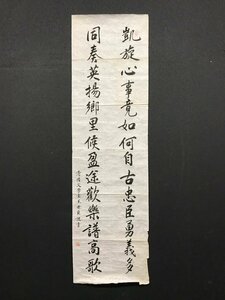 凱旋心事竟如何自古忠臣勇義多
同奏英揚鄉里候盈途歡樂譜高歌